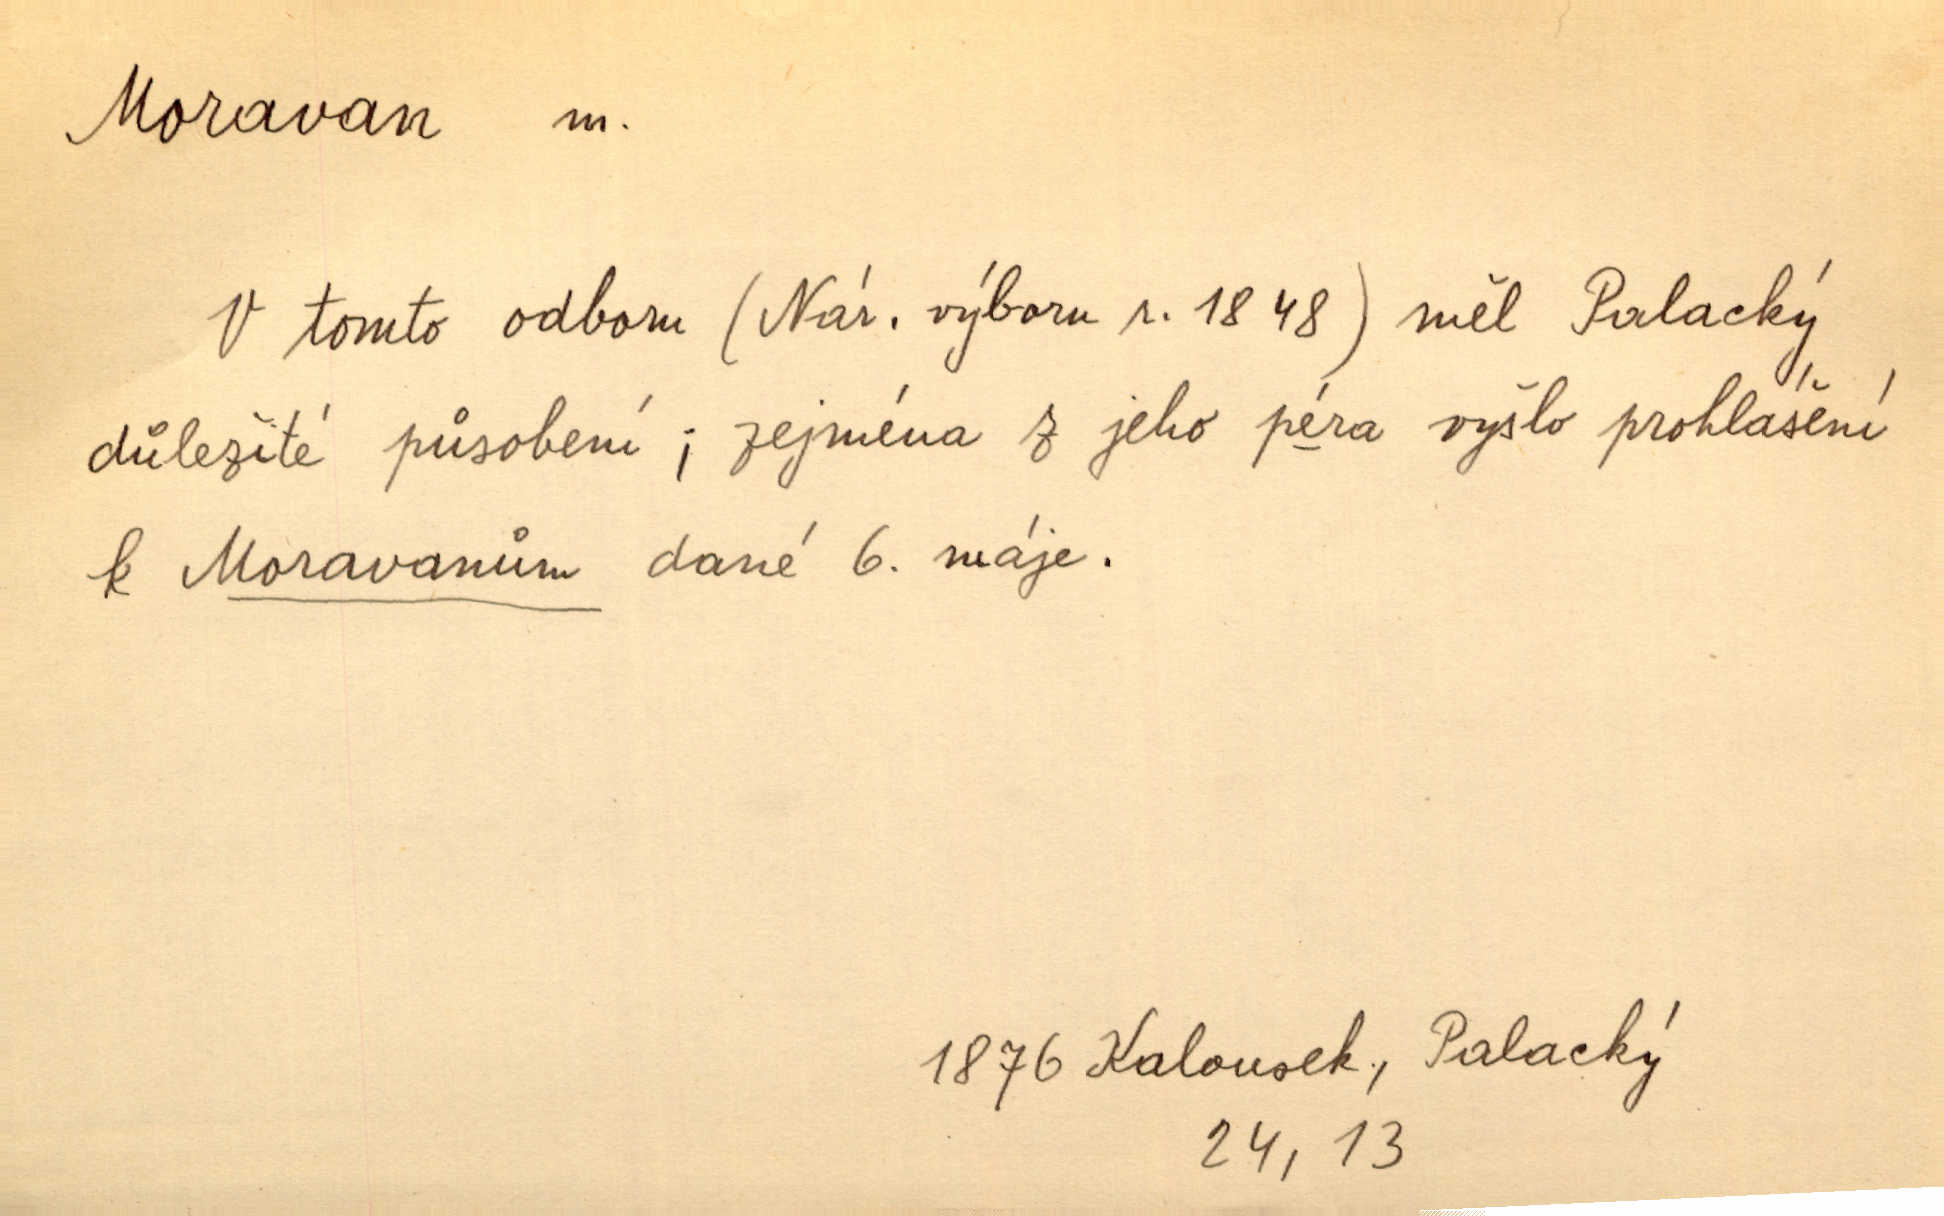 Moravan m.
V tomto odboru (Nár. výboru r. 1848) měl Palacký
důležité působení; zejména z jeho péra vyšlo prohlášení
k Moravanům dané 6. máje.
1876 Kalousek, Palacký
24, 13